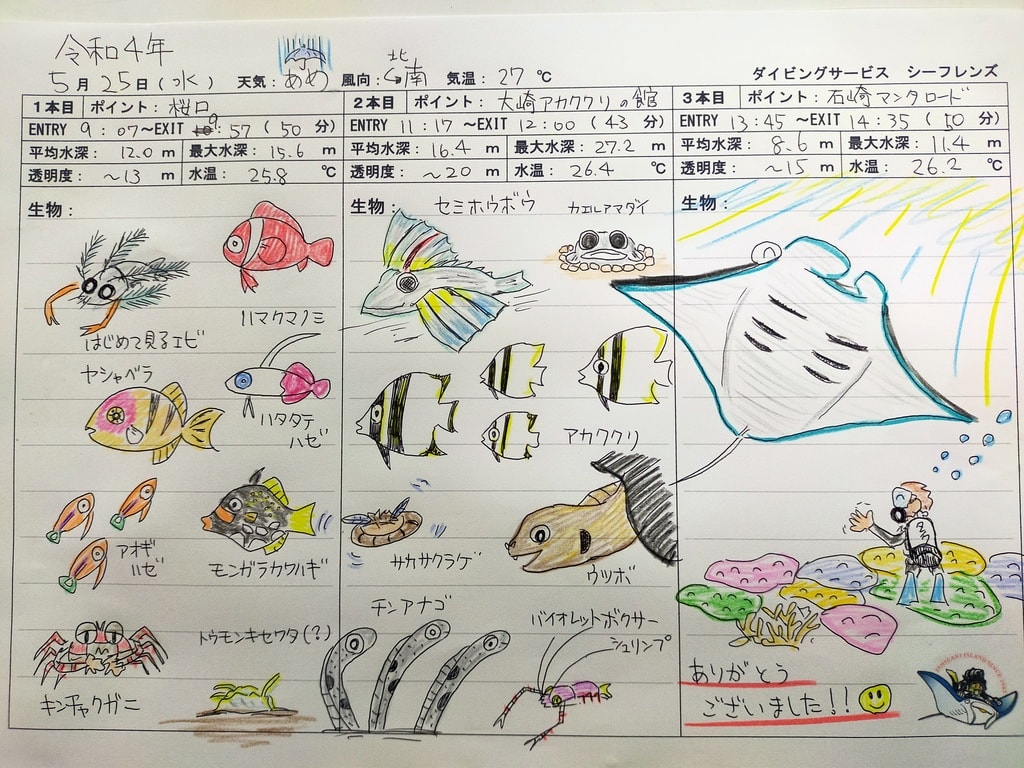 令和4年
5月25日(水) 天気:あめ 風向:北→南 気温:27℃
ダイビングサービス シーフレンズ
1本目 ポイント:桜口
ENTRY 9:07~EXIT 9:57(50分)
平均水深: 12.0 m 最大水深: 15.6 m
透明度: ~13 m 水温: 25.8 ℃
生物:
はじめて見るエビ
ハマクマノミ
ヤシャベラ
ハタタテ
ハゼ
アオギ
ハゼ
モンガラカワハギ
トウモンキセワタ(?)
キンチャクガニ
2本目 ポイント:大崎アカククリの館
ENTRY 11:17 ~EXIT 12:00(43分)
平均水深: 16.4 m 最大水深: 27.2 m
透明度: ~20 m 水温: 26.4 ℃
生物:
セミホウボウ
カエルアマダイ
アカククリ
サカサクラゲ
ウツボ
チンアナゴ
バイオレットボクサー
シュリンプ
3本目 ポイント:石崎マンタロード
ENTRY 13:45~EXIT 14:35(50分)
平均水深: 8.6 m 最大水深: 11.4 m
透明度: ~15 m 水温: 26.2 ℃
生物:
ありがとう
ございました!!